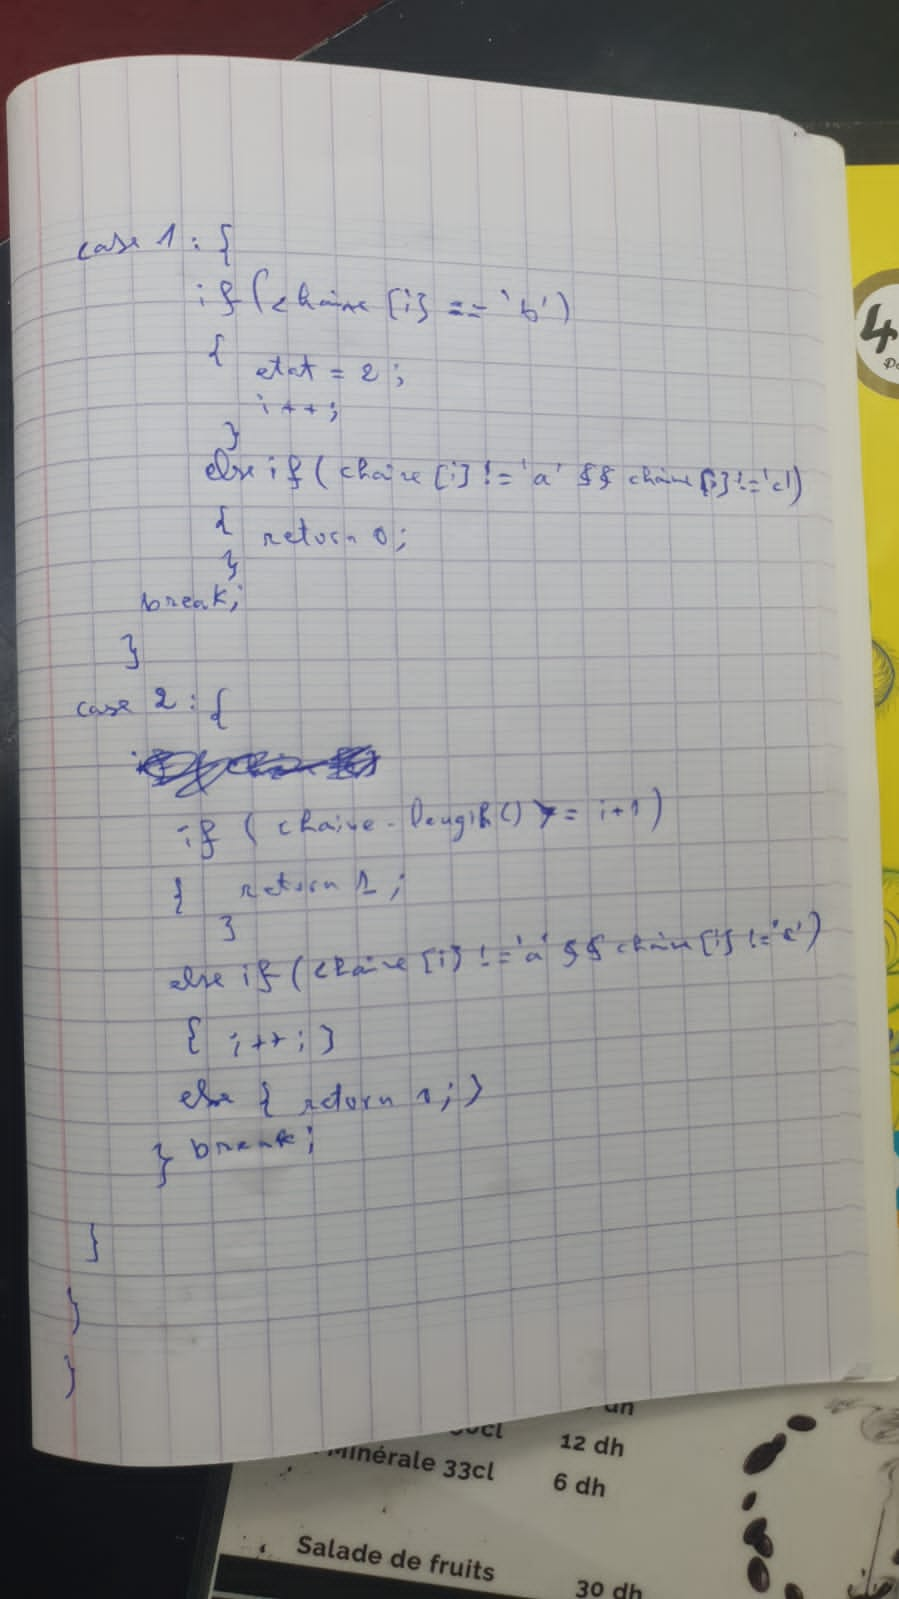 case 1 : {
if (chaine [i] == 'b')
{ etat = 2 ;
i++;
}
else if ( chaine [i] != 'a' && chaine [i] != 'c')
{ return 0;
}
break;
}
case 2 : {
if ( chaine.length() >= i+1 )
{ return 1 ;
}
else if ( chaine [i] != 'a' && chaine [i] != 'c')
{ i++; }
else { return 1; }
} break;
}
}
}
4
12 dh
Minérale 33cl 6 dh
Salade de fruits 30 dh